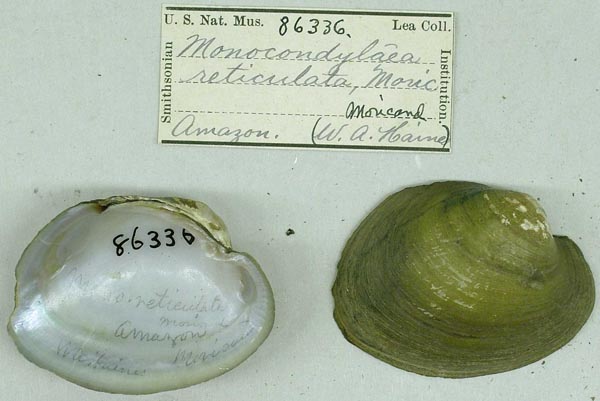 U. S. Nat. Mus. 86336. Lea Coll.
Smithsonian
Institution.
Monocondylæa
reticulata, Moric
Moricand
Amazon. (W. A. Haine)
86336
reticulata
Moric
Amazon